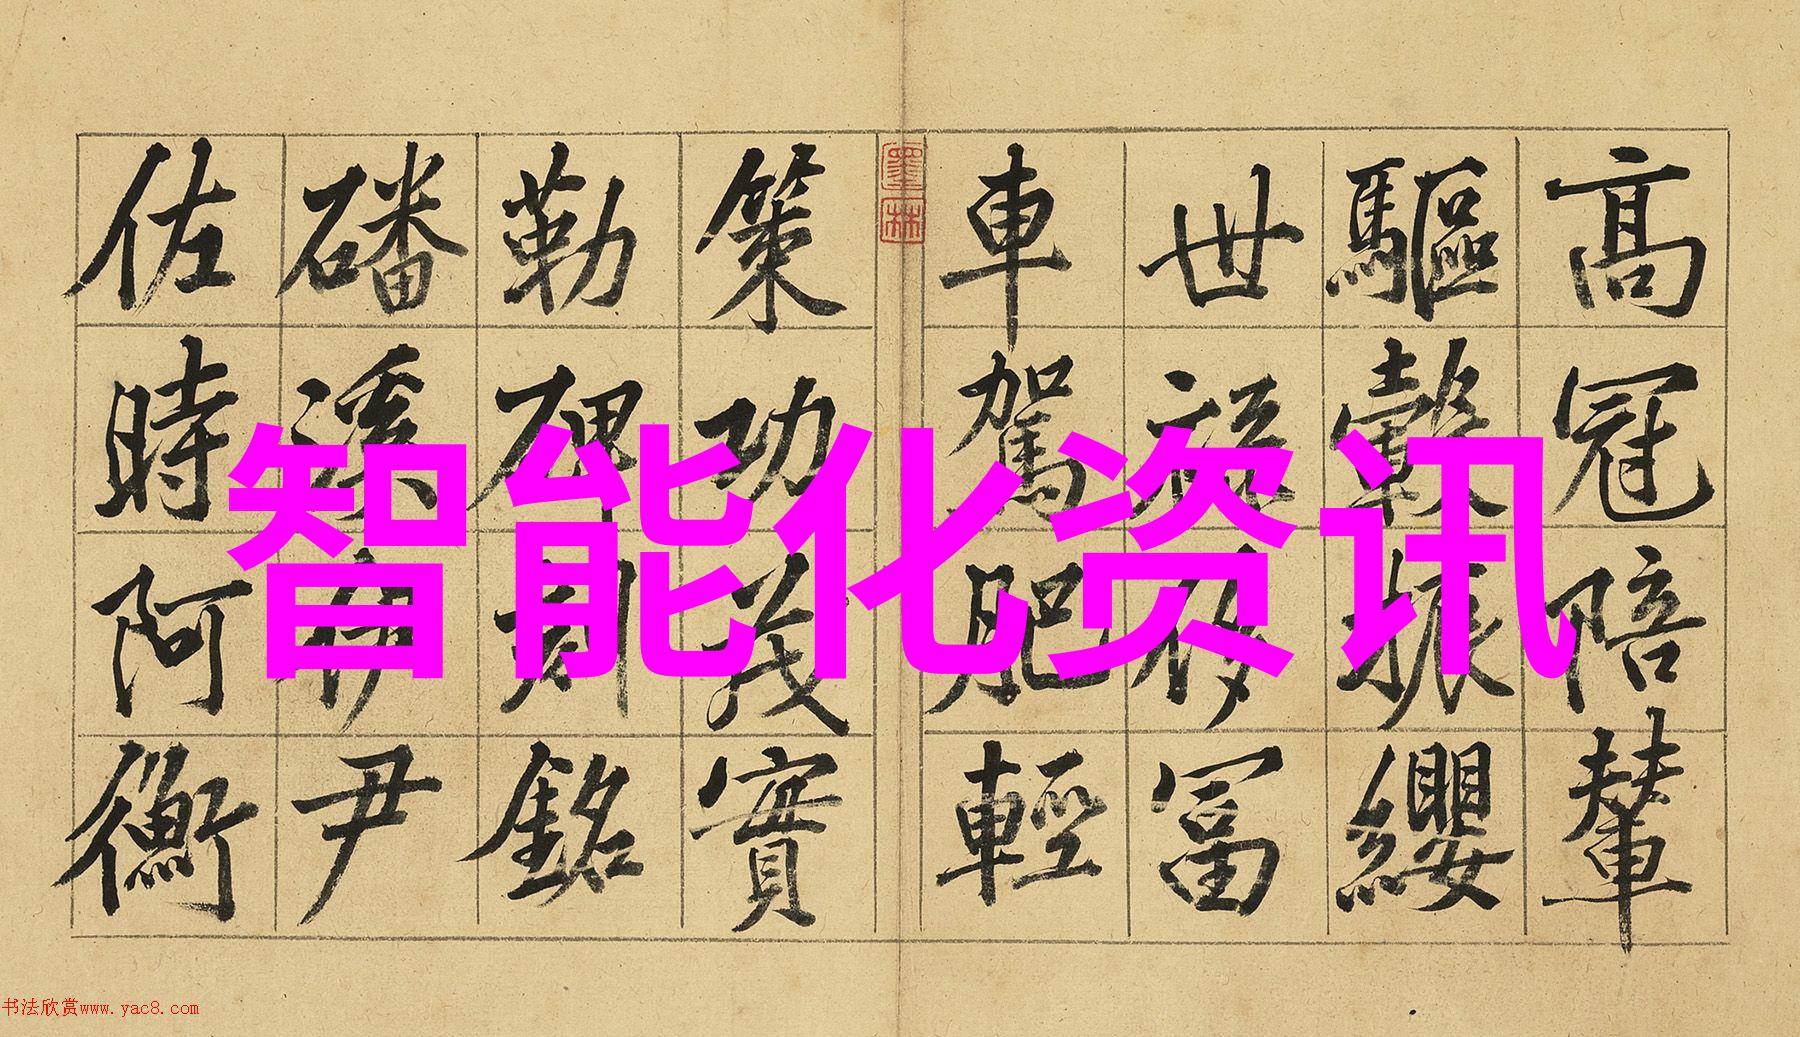 高冠陪輦
驅轂振纓
世祿侈富
車駕肥輕
策功茂實
勒碑刻銘
磻溪伊尹
佐時阿衡
墨林
智能化资讯
书法欣赏www.yac8.com